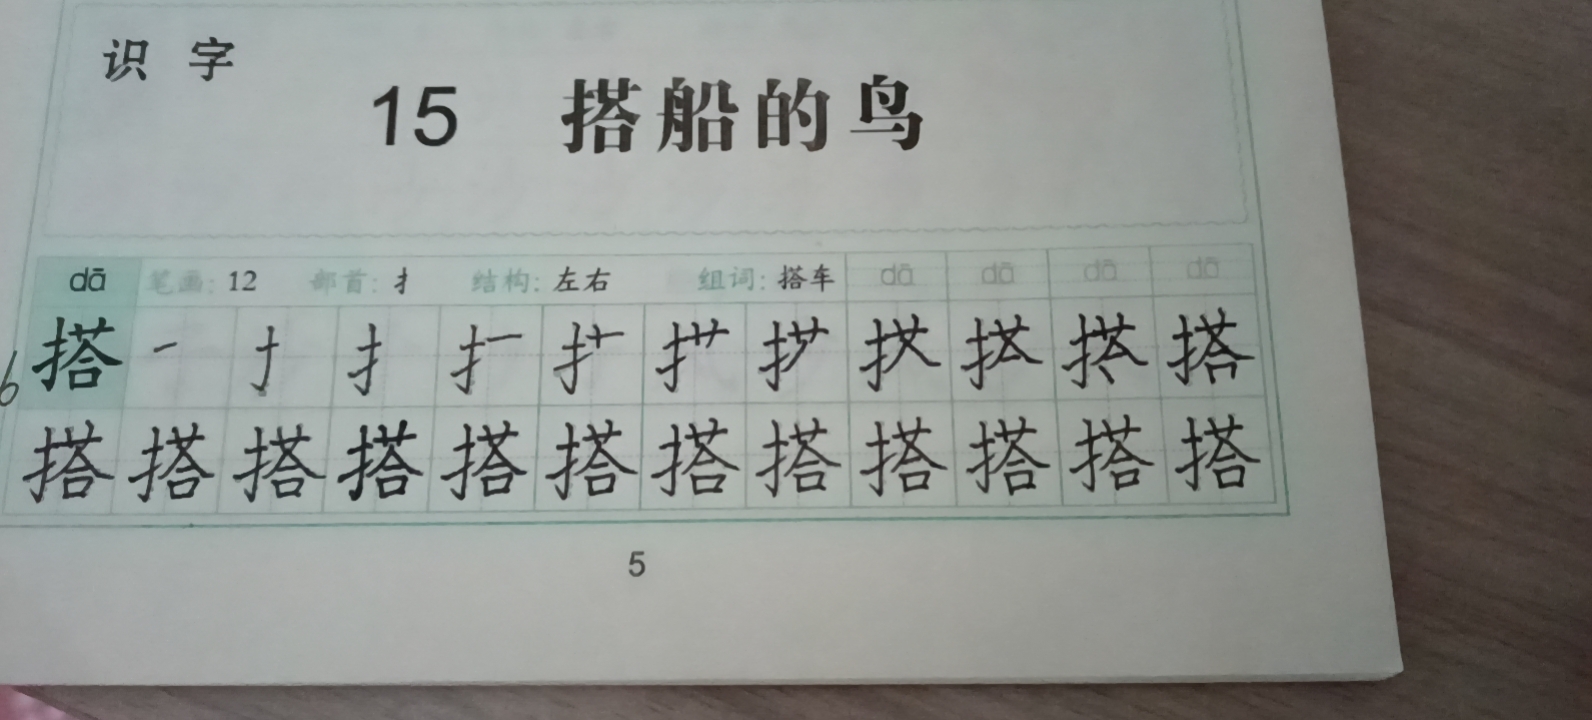 识字
15 搭船的鸟
dā 笔画：12 部首：扌 结构：左右 组词：搭车 dā dā dā dā
搭 一 扌 搭
搭 搭 搭 搭 搭 搭 搭 搭 搭 搭 搭 搭
5